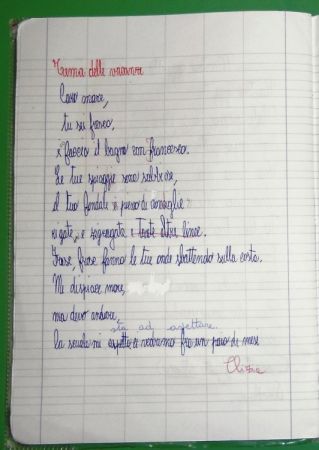 Tema delle vacanze
Caro mare,
tu sei fresco,
e faccio il bagno con Francesco.
Le tue spiagge sono sabbiose,
il tuo fondale è pieno di conchiglie
rigate, e segregate e Tante altre linee.
Frase, frase fanno le tue onde sbattendo sulla costa.
Mi dispiace mare,
ma devo andare,
sta ad aspettare.
la scuola mi aspetta ci vedremo fra un paio di mesi